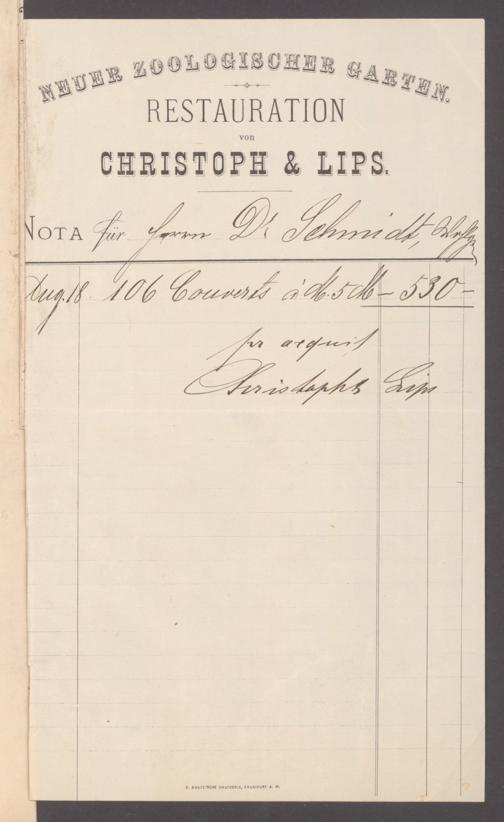 NEUER ZOOLOGISCHER GARTEN.
RESTAURATION
von
CHRISTOPH & LIPS.
NOTA für Herrn Dr Schmidt,
Aug. 18 106 Couverts à M. 5 M – 530 –
pr acquit
Christoph & Lips